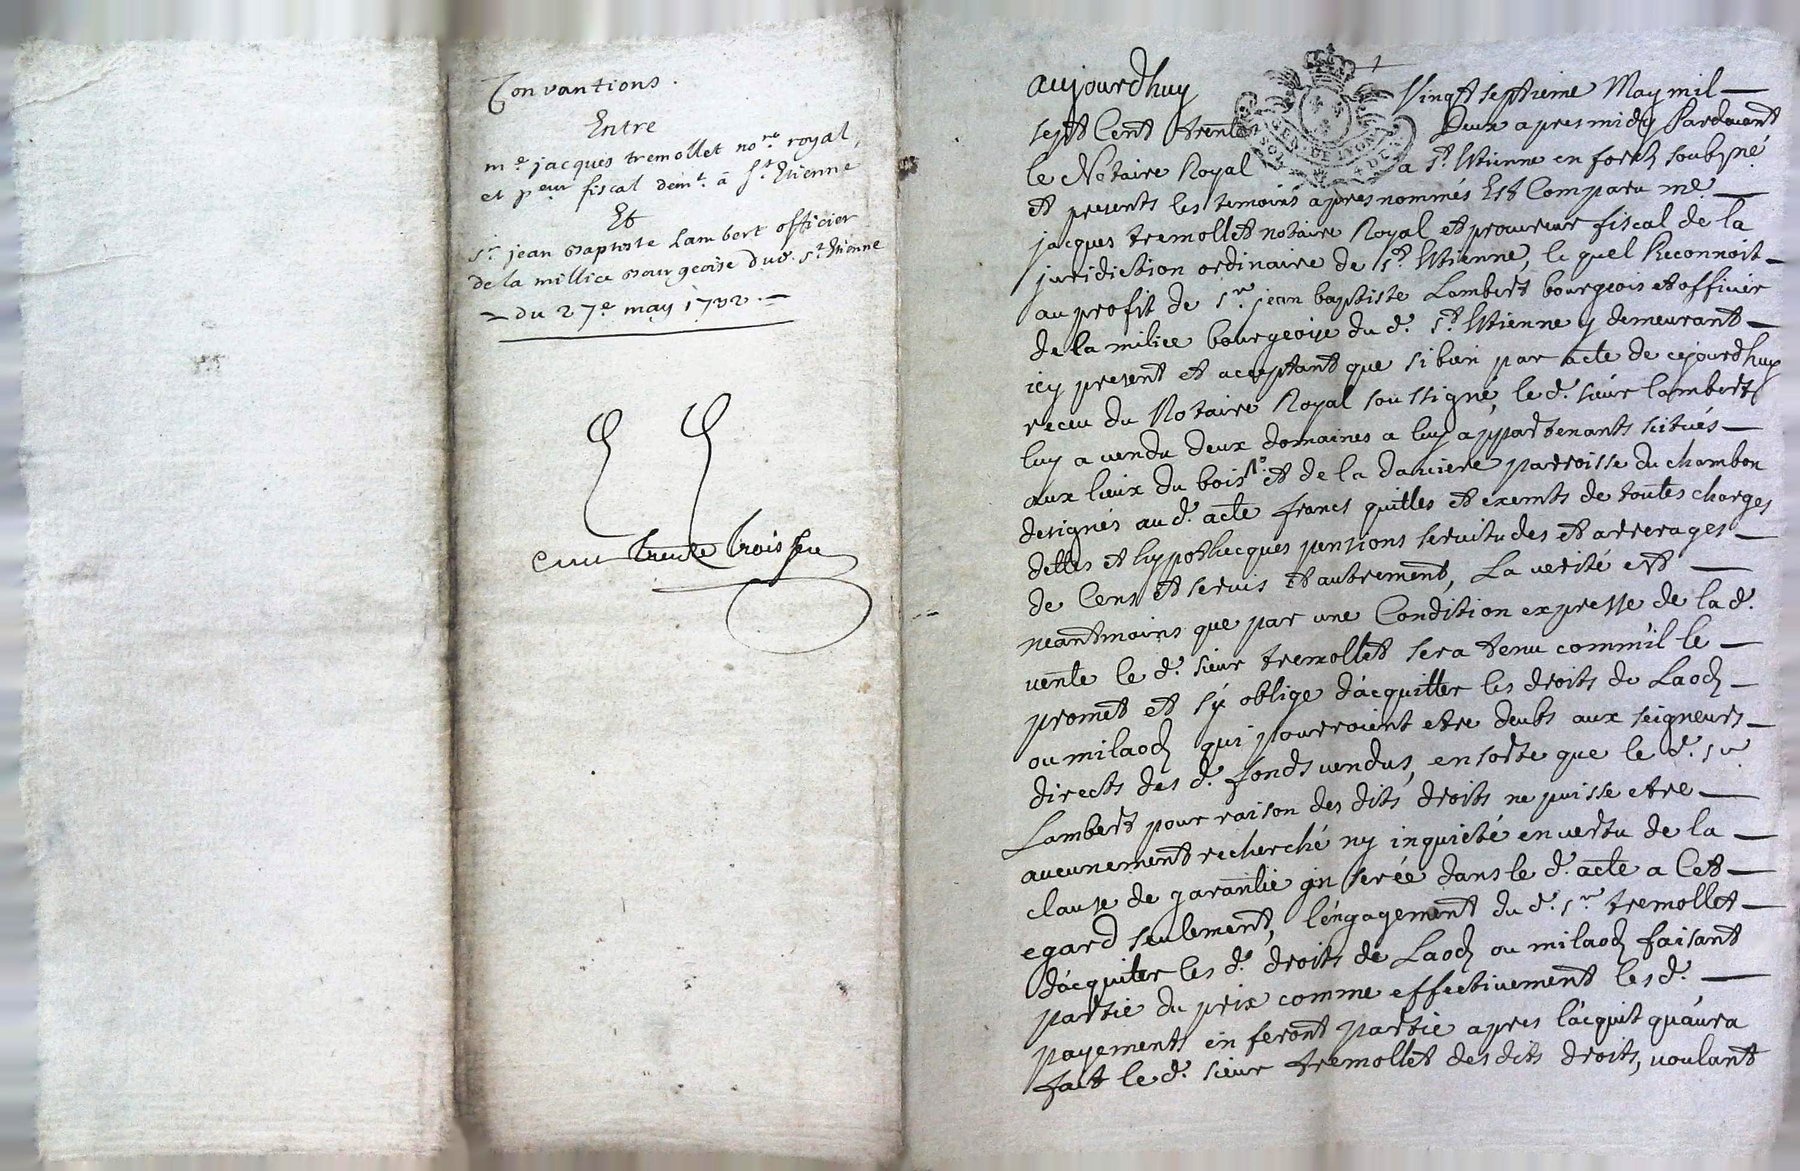 Convantions.
Entre
me. jacques tremollet nore. royal,
et peur fiscal demt. â St. Etienne
Et
Sr. jean Baptiste Lambert officier
de la millice Bourgeoise dud. St. Etienne
du 27e. may 1732.
trente trois
aujourdhuy Vingt septieme May mil
sept Cent trente Deux apres midy Pardevant
le Notaire Royal a St. Etienne en forest soubsné
et presents les temoins apres nommés Est Comparu me
jacques tremollet notaire Royal et procureur fiscal de la
juridiction ordinaire de St. Etienne, le quel Reconnoit
au profit de Sr. jean baptiste Lambert bourgeois et officier
de la milice bourgeoise du d. St. Etienne y demeurant
icy present et acceptant que si bien par acte de cejourdhuy
receu du Notaire Royal soussigné, le d. sieur lambert
luy a vendu deux domaines a luy appartenants scitués
aux lieux du bois et de la parroisse du chambon
designés au d. acte francs quittes et exempts de toutes charges
dettes et hypothecques pensions servitudes et arrerages
de Cens et servis et autrement, La verité est
neantmoins que par une Condition expresse de la d.
vente le d. sieur tremollet sera tenu comm'il le
promet et s'y oblige d'acquitter les droits de Laod
ou milaod qui pourroient etre deubs aux seigneurs
directs des d. fonds vendus, en sorte que le d. sr.
Lambert pour raison des dits droits ne puisse etre
aucunement recherché ny inquieté en vertu de la
clause de garantie inserée dans le d. acte a Cet
egard seulement, l'engagement du d. sr. tremollet
d'acquiter les d. droits de Laod ou milaod faisant
partie du prix comme effectivement les d.
payements en feront partie apres l'acquit qu'aura
fait le d. sieur tremollet des dits droits, voulant
GEN. DE LYON